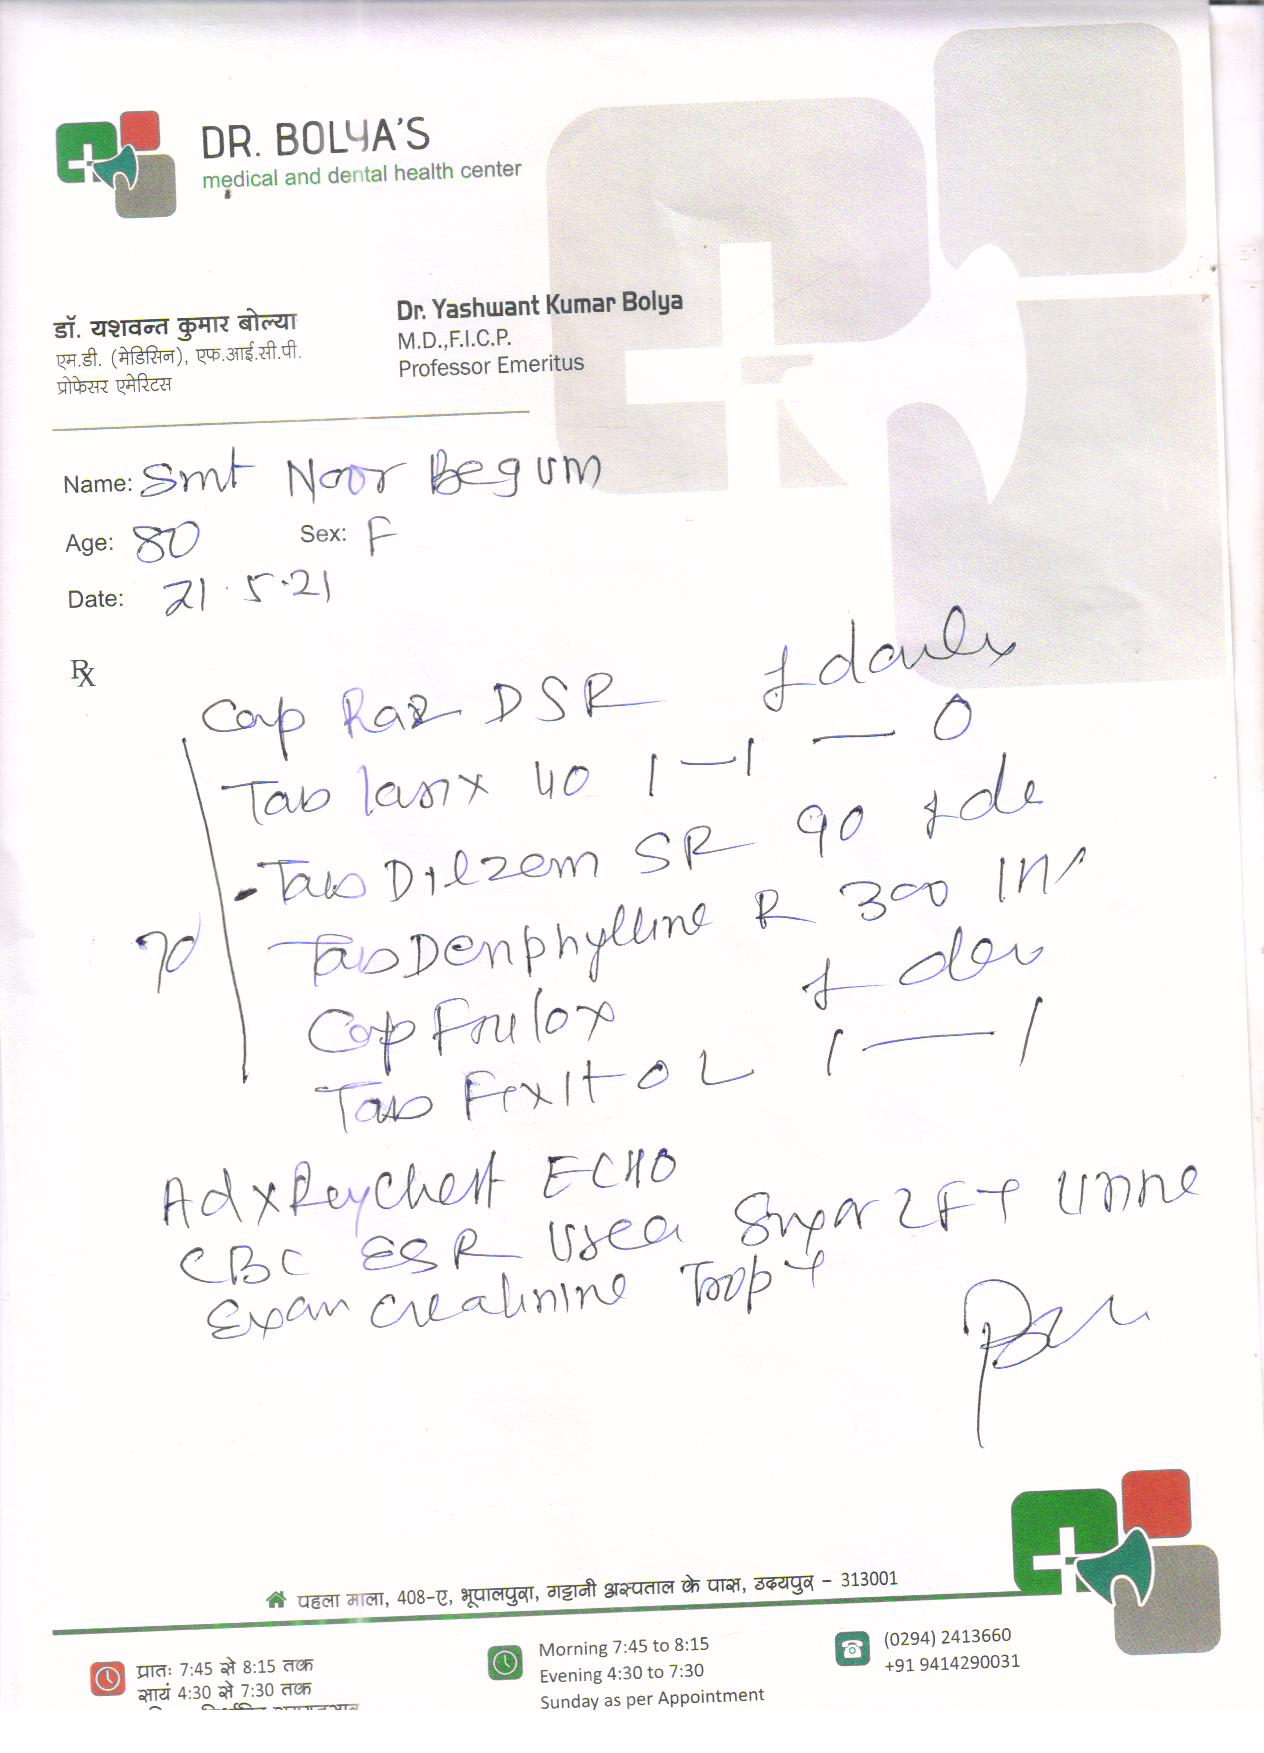 DR. BOLYA'S
medical and dental health center
डॉ. यशवन्त कुमार बोल्या
एम.डी. (मेडिसिन), एफ.आई.सी.पी.
प्रोफेसर एमेरिटस
Dr. Yashwant Kumar Bolya
M.D.,F.I.C.P.
Professor Emeritus
Name: Smt Noor Begum
Age: 80 Sex: F
Date: 21.5.21
Rx
Cap Raz DSR 1 daily
Tab lasix 40 1-1-0
Tab Dilzem SR 90
Tab Denphylline R 300
Cap
Tab 1 — 1
Ad xRay Chest ECHO
CBC ESR Urea Sugar Urine
Exam Creatinine Trop T
पहला माला, 408-ए, भूपालपुरा, गट्टानी अस्पताल के पास, उदयपुर - 313001
प्रातः 7:45 से 8:15 तक
सायं 4:30 से 7:30 तक
Morning 7:45 to 8:15
Evening 4:30 to 7:30
Sunday as per Appointment
(0294) 2413660
+91 9414290031